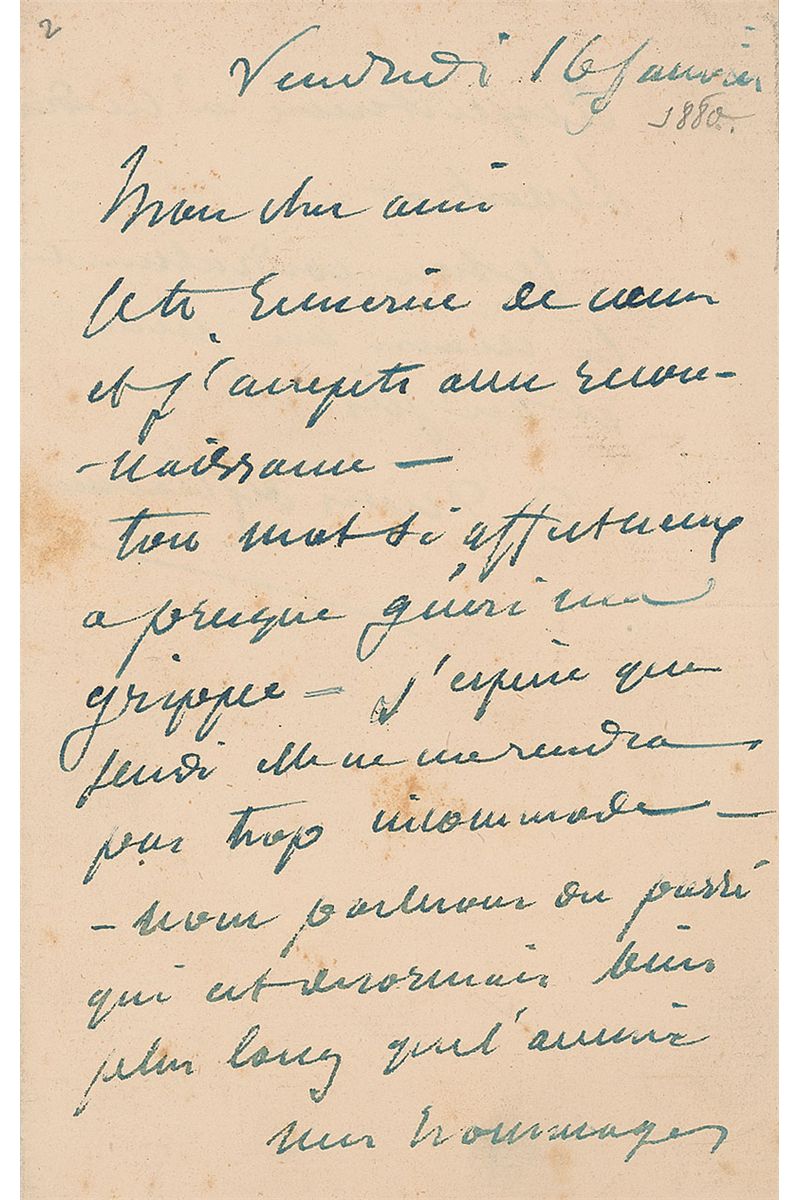 2
Vendredi 16 Janvier
1880.
Mon cher ami
Je te remercie de cœur
et j'accepte avec recon-
-naissance —
ton mot si affectueux
a presque guéri ma
grippe — J'espère que
Jeudi elle ne me rendra
pas trop incommode —
— nous parlerons du passé
qui est désormais bien
plus long que l'avenir
mes hommages